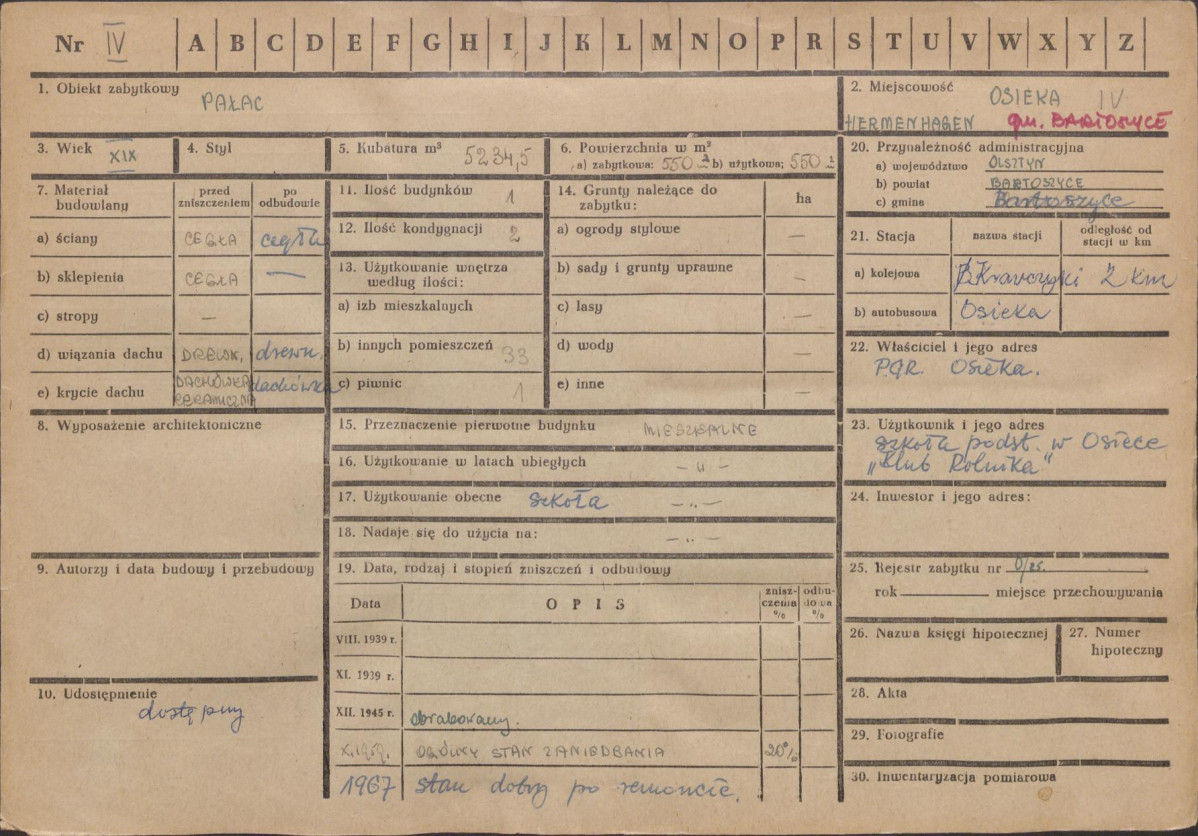 Nr IV A B C D E F G H I J K L M N O P R S T U V W X Y Z
1. Obiekt zabytkowy
PAŁAC
2. Miejscowość
OSIEKA IV
HERMENHAGEN gm. BARTOSZYCE
3. Wiek XIX
4. Styl
5. Kubatura m³ 5234,5
6. Powierzchnia w m²
a) zabytkowa: 550 b) użytkowa: 550
7. Materiał budowlany
przed zniszczeniem
po odbudowie
a) ściany CEGŁA cegła
b) sklepienia CEGŁA —
c) stropy —
d) wiązania dachu DREWN. drewn.
e) krycie dachu DACHÓWKA CERAMICZNA dachówka
8. Wyposażenie architektoniczne
9. Autorzy i data budowy i przebudowy
10. Udostępnienie
dostępny
11. Ilość budynków 1
12. Ilość kondygnacji 2
13. Użytkowanie wnętrza
według ilości:
a) izb mieszkalnych
b) innych pomieszczeń 33
c) piwnic 1
14. Grunty należące do
zabytku: ha
a) ogrody stylowe —
b) sady i grunty uprawne —
c) lasy —
d) wody —
e) inne —
15. Przeznaczenie pierwotne budynku MIESZKALNE
16. Użytkowanie w latach ubiegłych – u –
17. Użytkowanie obecne szkoła – „ –
18. Nadaje się do użycia na: – „ –
19. Data, rodzaj i stopień zniszczeń i odbudowy
Data OPIS znisz-czenia % odbu-dowa %
VIII. 1939 r.
XI. 1939 r.
XII. 1945 r. obrabowany.
X.1959. OGÓLNY STAN ZANIEDBANIA 20%
1967 stan dobry po remoncie.
20. Przynależność administracyjna
a) województwo OLSZTYN
b) powiat BARTOSZYCE
c) gmina Bartoszyce
21. Stacja nazwa stacji odległość od stacji w km
a) kolejowa Krawczyki 2 km
b) autobusowa Osieka
22. Właściciel i jego adres
P.G.R. Osieka.
23. Użytkownik i jego adres
szkoła podst. w Osiece
„Klub Rolnika"
24. Inwestor i jego adres:
25. Rejestr zabytku nr
rok miejsce przechowywania
26. Nazwa księgi hipotecznej
27. Numer
hipoteczny
28. Akta
29. Fotografie
30. Inwentaryzacja pomiarowa